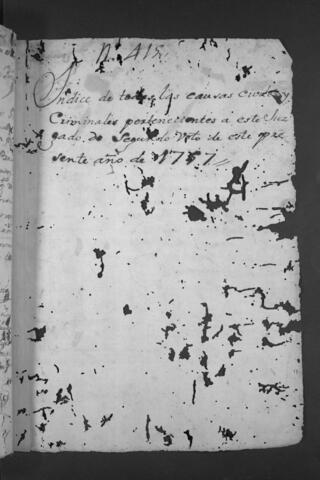 N. 415.
Yndice de todas las causas civiles y
Criminales pertenecientes a este Juz
gado de Segundo Voto de este pre
sente año de 1757